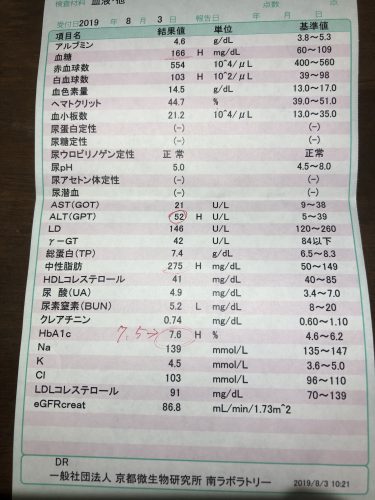 検査材料 血液・他 点数 点
受付日2019 年 8 月 3 日 報告日 年 月 日
項目名 結果値 単位 基準値
アルブミン 4.6 g/dL 3.8～5.3
血糖 166 H mg/dL 60～109
赤血球数 554 10^4/μL 400～560
白血球数 103 H 10^2/μL 39～98
血色素量 14.5 g/dL 13.0～17.0
ヘマトクリット 44.7 % 39.0～51.0
血小板数 21.2 10^4/μL 13.0～35.0
尿蛋白定性 (-) (-)
尿糖定性 (-) (-)
尿ウロビリノゲン定性 正常 正常
尿pH 5.0 4.5～8.0
尿アセトン体定性 (-) (-)
尿潜血 (-) (-)
AST(GOT) 21 U/L 9～38
ALT(GPT) 52 H U/L 5～39
LD 146 U/L 120～260
γ-GT 42 U/L 84以下
総蛋白(TP) 7.4 g/dL 6.5～8.3
中性脂肪 275 H mg/dL 50～149
HDLコレステロール 41 mg/dL 40～85
尿 酸(UA) 4.9 mg/dL 3.4～7.0
尿素窒素(BUN) 5.2 L mg/dL 8～20
クレアチニン 0.74 mg/dL 0.60～1.10
HbA1c 7.5→ 7.6 H % 4.6～6.2
Na 139 mmol/L 135～147
K 4.5 mmol/L 3.6～5.0
Cl 103 mmol/L 96～110
LDLコレステロール 91 mg/dL 70～139
eGFRcreat 86.8 mL/min/1.73m^2
DR
一般社団法人 京都微生物研究所 南ラボラトリー 2019/8/3 10:21